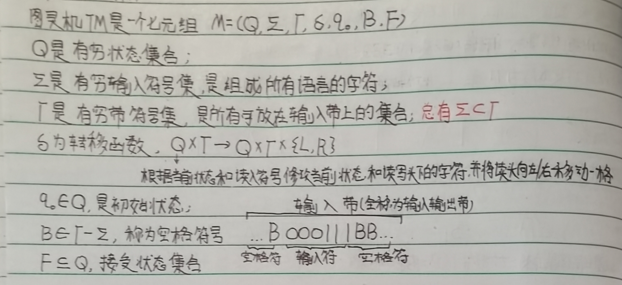 图灵机TM是一个七元组 M=(Q,Σ,Γ,δ,q₀,B,F)
Q是有穷状态集合;
Σ是有穷输入符号集,是组成所有语言的字符;
Γ是有穷带符号集,是所有可放在输入带上的集合;总有Σ⊂Γ
δ为转移函数,Q×Γ→Q×Γ×{L,R}
根据当前状态和读入符号修改当前状态,和读写头下的字符,并将读头向左/右移动一格
q₀∈Q,是初始状态;
输入带(全称为输入输出带)
B∈Γ-Σ,称为空格符号
...B000111BB...
空格符 输入符 空格符
F⊆Q,接受状态集合